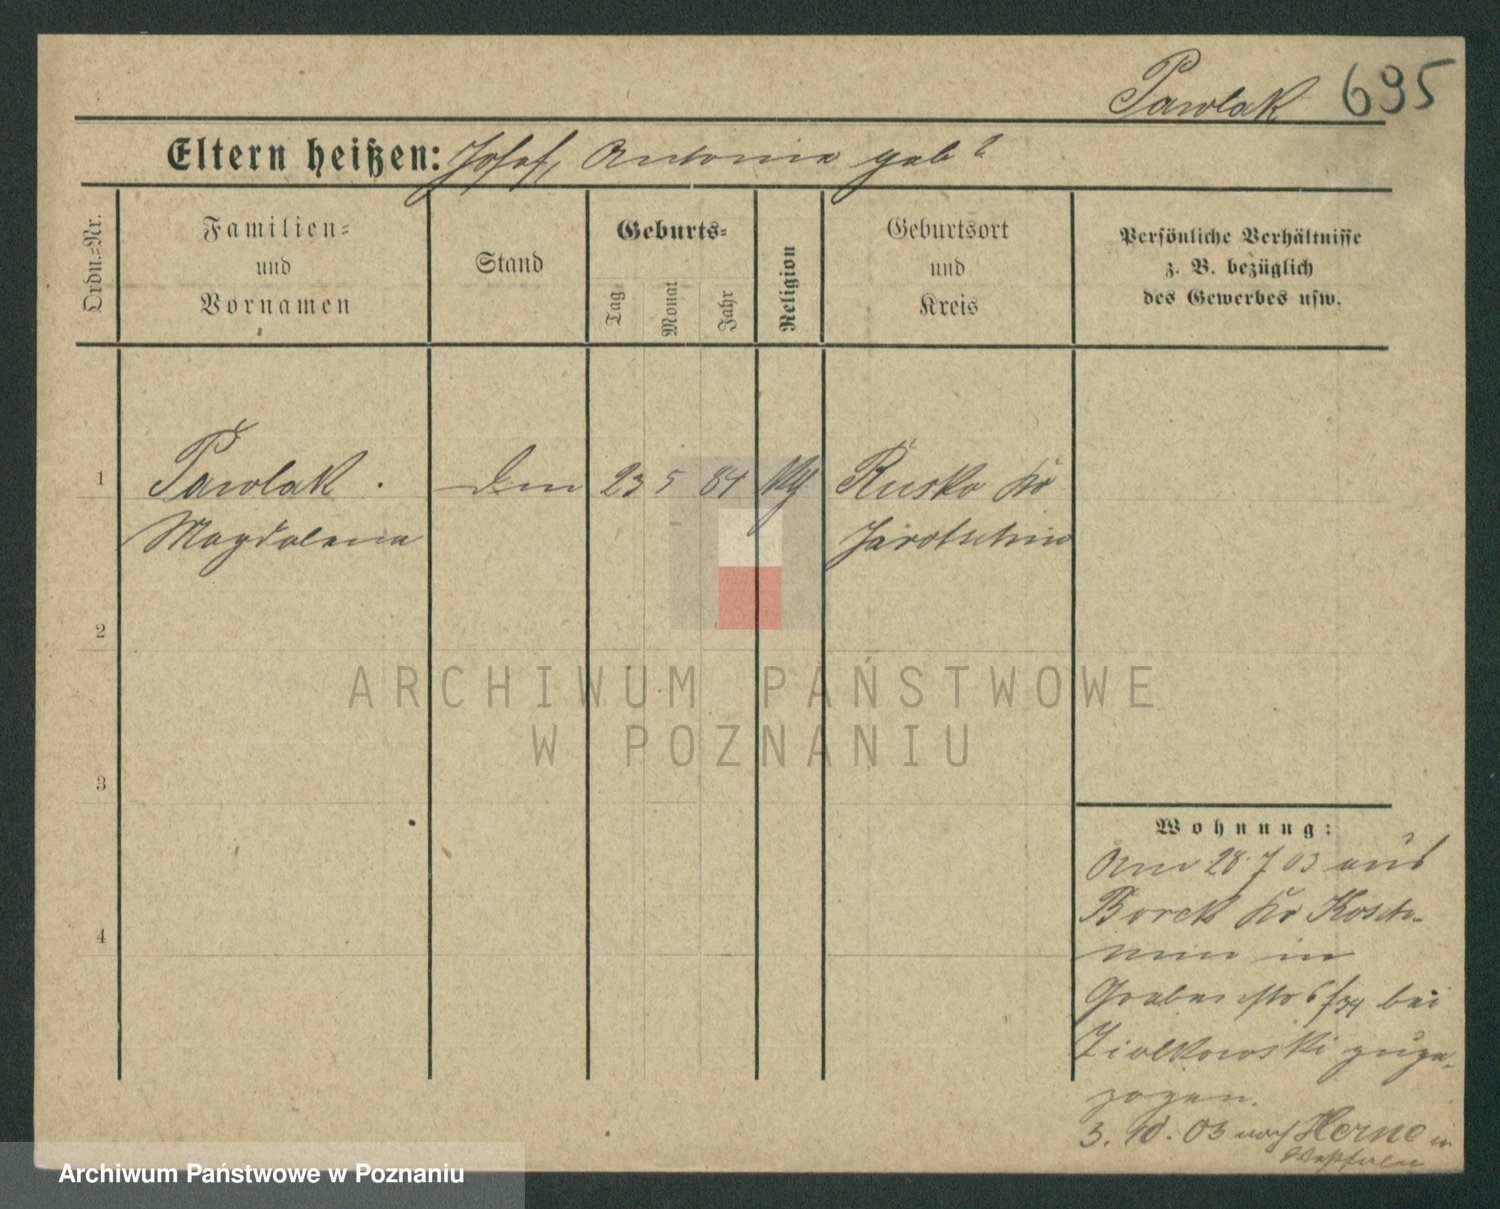 Pawlak 695
Eltern heißen: Josef, Antonia geb ?
Ordn.-Nr.
Familien=
und
Vornamen
Stand
Geburts=
Tag
Monat
Jahr
Religion
Geburtsort
und
Kreis
Persönliche Verhältnisse
z. B. bezüglich
des Gewerbes usw.
1 Pawlak. 23 5 84 Rusko Kr
Magdalena Jarotschin
2
3
4
ARCHIWUM PAŃSTWOWE
W POZNANIU
Wohnung:
Am 28.7 03 aus
Borek Kr Kosch-
min in
Grabenstr 6 bei
Ziolkowski zuge-
zogen.
3. 10. 03 nach Herne in
Westfalen
Archiwum Państwowe w Poznaniu